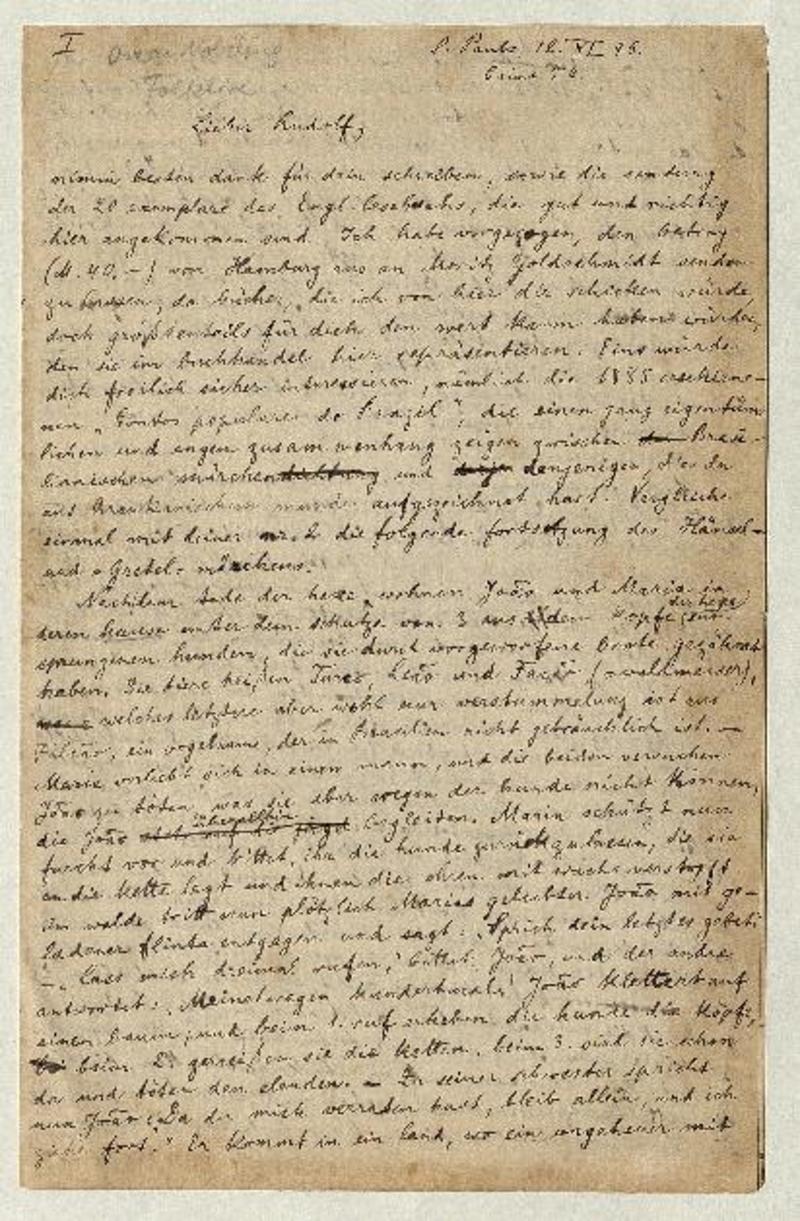 I
S. Paulo 12. XI 96.
Lieber Rudolf,
nimm besten dank für dein schreiben, sowie die sendung
der 20 exemplare des Engl. , die gut und richtig
hier angekommen sind. Ich habe vorgezogen, den betrag
(M. 40.–) von Hamburg aus an Moritz Goldschmidt senden
zu lassen, da bücher, die ich von hier dir schicken würde,
doch größtenteils für dich den wert kaum haben würden,
den sie im buchhandel hier repräsentieren. Eins würde
dich freilich sicher interessieren, nämlich die 1885 erschiene-
nen „Contos populares do Brazil", die einen ganz eigentüm-
lichen und engen zusammenhang zeigen zwischen Brasi-
lianischen märchen und denjenigen, die du
aus munde aufgezeichnet hast. Vergleiche
einmal mit deiner die folgende fortsetzung des Hänsel-
und - Gretel- märchens:
Nach dem tode der hexe wohnen João und Maria in
deren hause unter dem schutze von 3 aus dem kopfe der hexe ent-
sprungenen hunden, die sie durch vorgeworfene brote gezähmt
haben. Die tiere heißen Turco, Leão und Facão (= waldmesser),
welches letztere aber wohl nur verstümmelung ist aus
Falcão, ein vogelname, der in Brasilien nicht gebräuchlich ist. —
Maria verliebt sich in einen mann, und die beiden versuchen
João zu töten, was sie aber wegen der hunde nicht können,
die João überallhin begleiten. Maria schützt nun
furcht vor und bittet, ihr die hunde zurückzulassen, die sie
an die kette legt und ihnen die ohren mit wachs verstopft.
Im walde tritt nun plötzlich Marias geliebter João mit ge-
ladener flinte entgegen und sagt: „Sprich dein letztes gebet!"
— „Lass mich dreimal rufen," bittet João, und der andre
antwortet: „Meinetwegen hundertmal!" João klettert auf
einen baum, und beim 1. ruf erheben die hunde die köpfe,
beim 2. zerreißen sie die ketten, beim 3. sind sie schon
da und töten den elenden. — Zu seiner schwester spricht
nun João: „Da du mich verraten hast, bleib allein, und ich
ziehe fort." Er kommt in ein land, wo ein ungeheuer mit